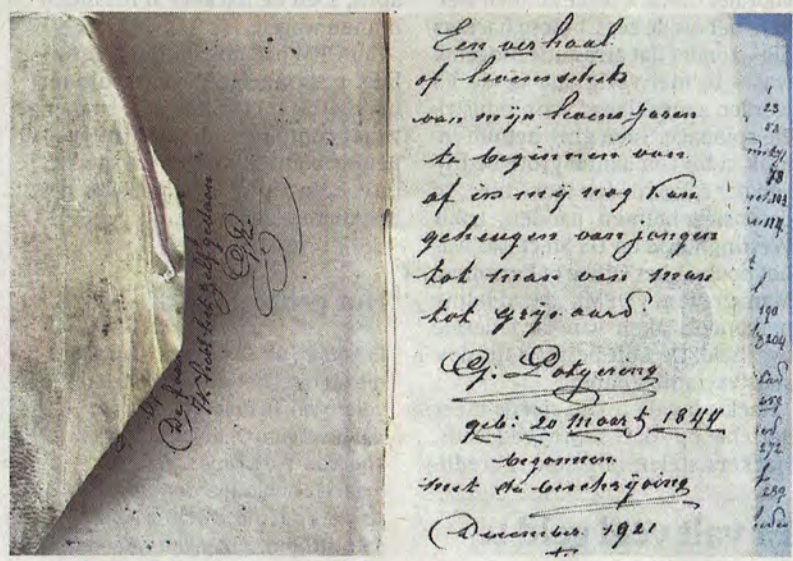 De
Th. Licht heb zelf gedaan
GP.
Een verhaal
of levensschets
van mijn levens Jaren
te beginnen van
af ik mij nog kan
geheugen van jongen
tot man van man
tot grijsaard.
G. Potgering
geb: 20 Maart 1844
begonnen
met de beschrijving
December 1921
1
23
52
78
103
114
190
204
259
272
289